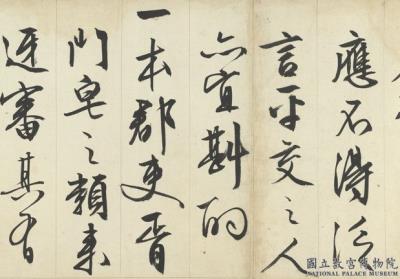 應不得泛
言平交之人
亦宜斟酌
一本郡吏胥
門皂之類來
迓審其有
國立故宮博物院
NATIONAL PALACE MUSEUM